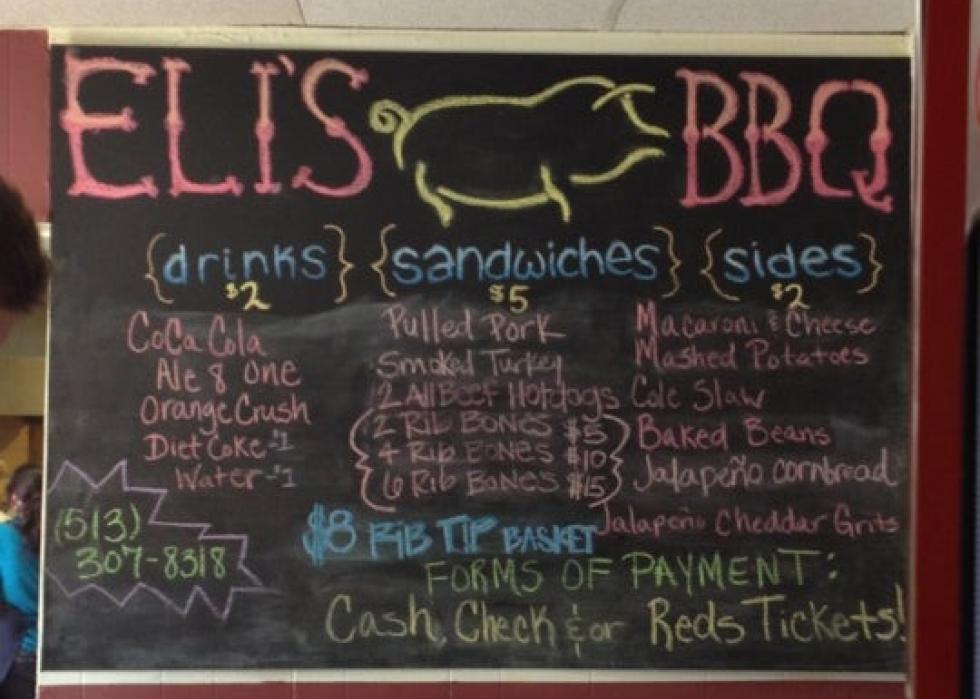 ELI'S BBQ
{drinks}
$2
CoCa Cola
Ale 8 One
Orange Crush
Diet Coke -$1
Water -$1
{sandwiches}
$5
Pulled Pork
Smoked Turkey
2 All Beef Hotdogs
2 Rib Bones $5
4 Rib Bones $10
6 Rib Bones $15
$8 RIB TIP BASKET
{sides}
$2
Macaroni & Cheese
Mashed Potatoes
Cole Slaw
Baked Beans
Jalapeño cornbread
Jalapeño Cheddar Grits
(513)
307-8318
FORMS OF PAYMENT:
Cash, Check & or Reds Tickets!